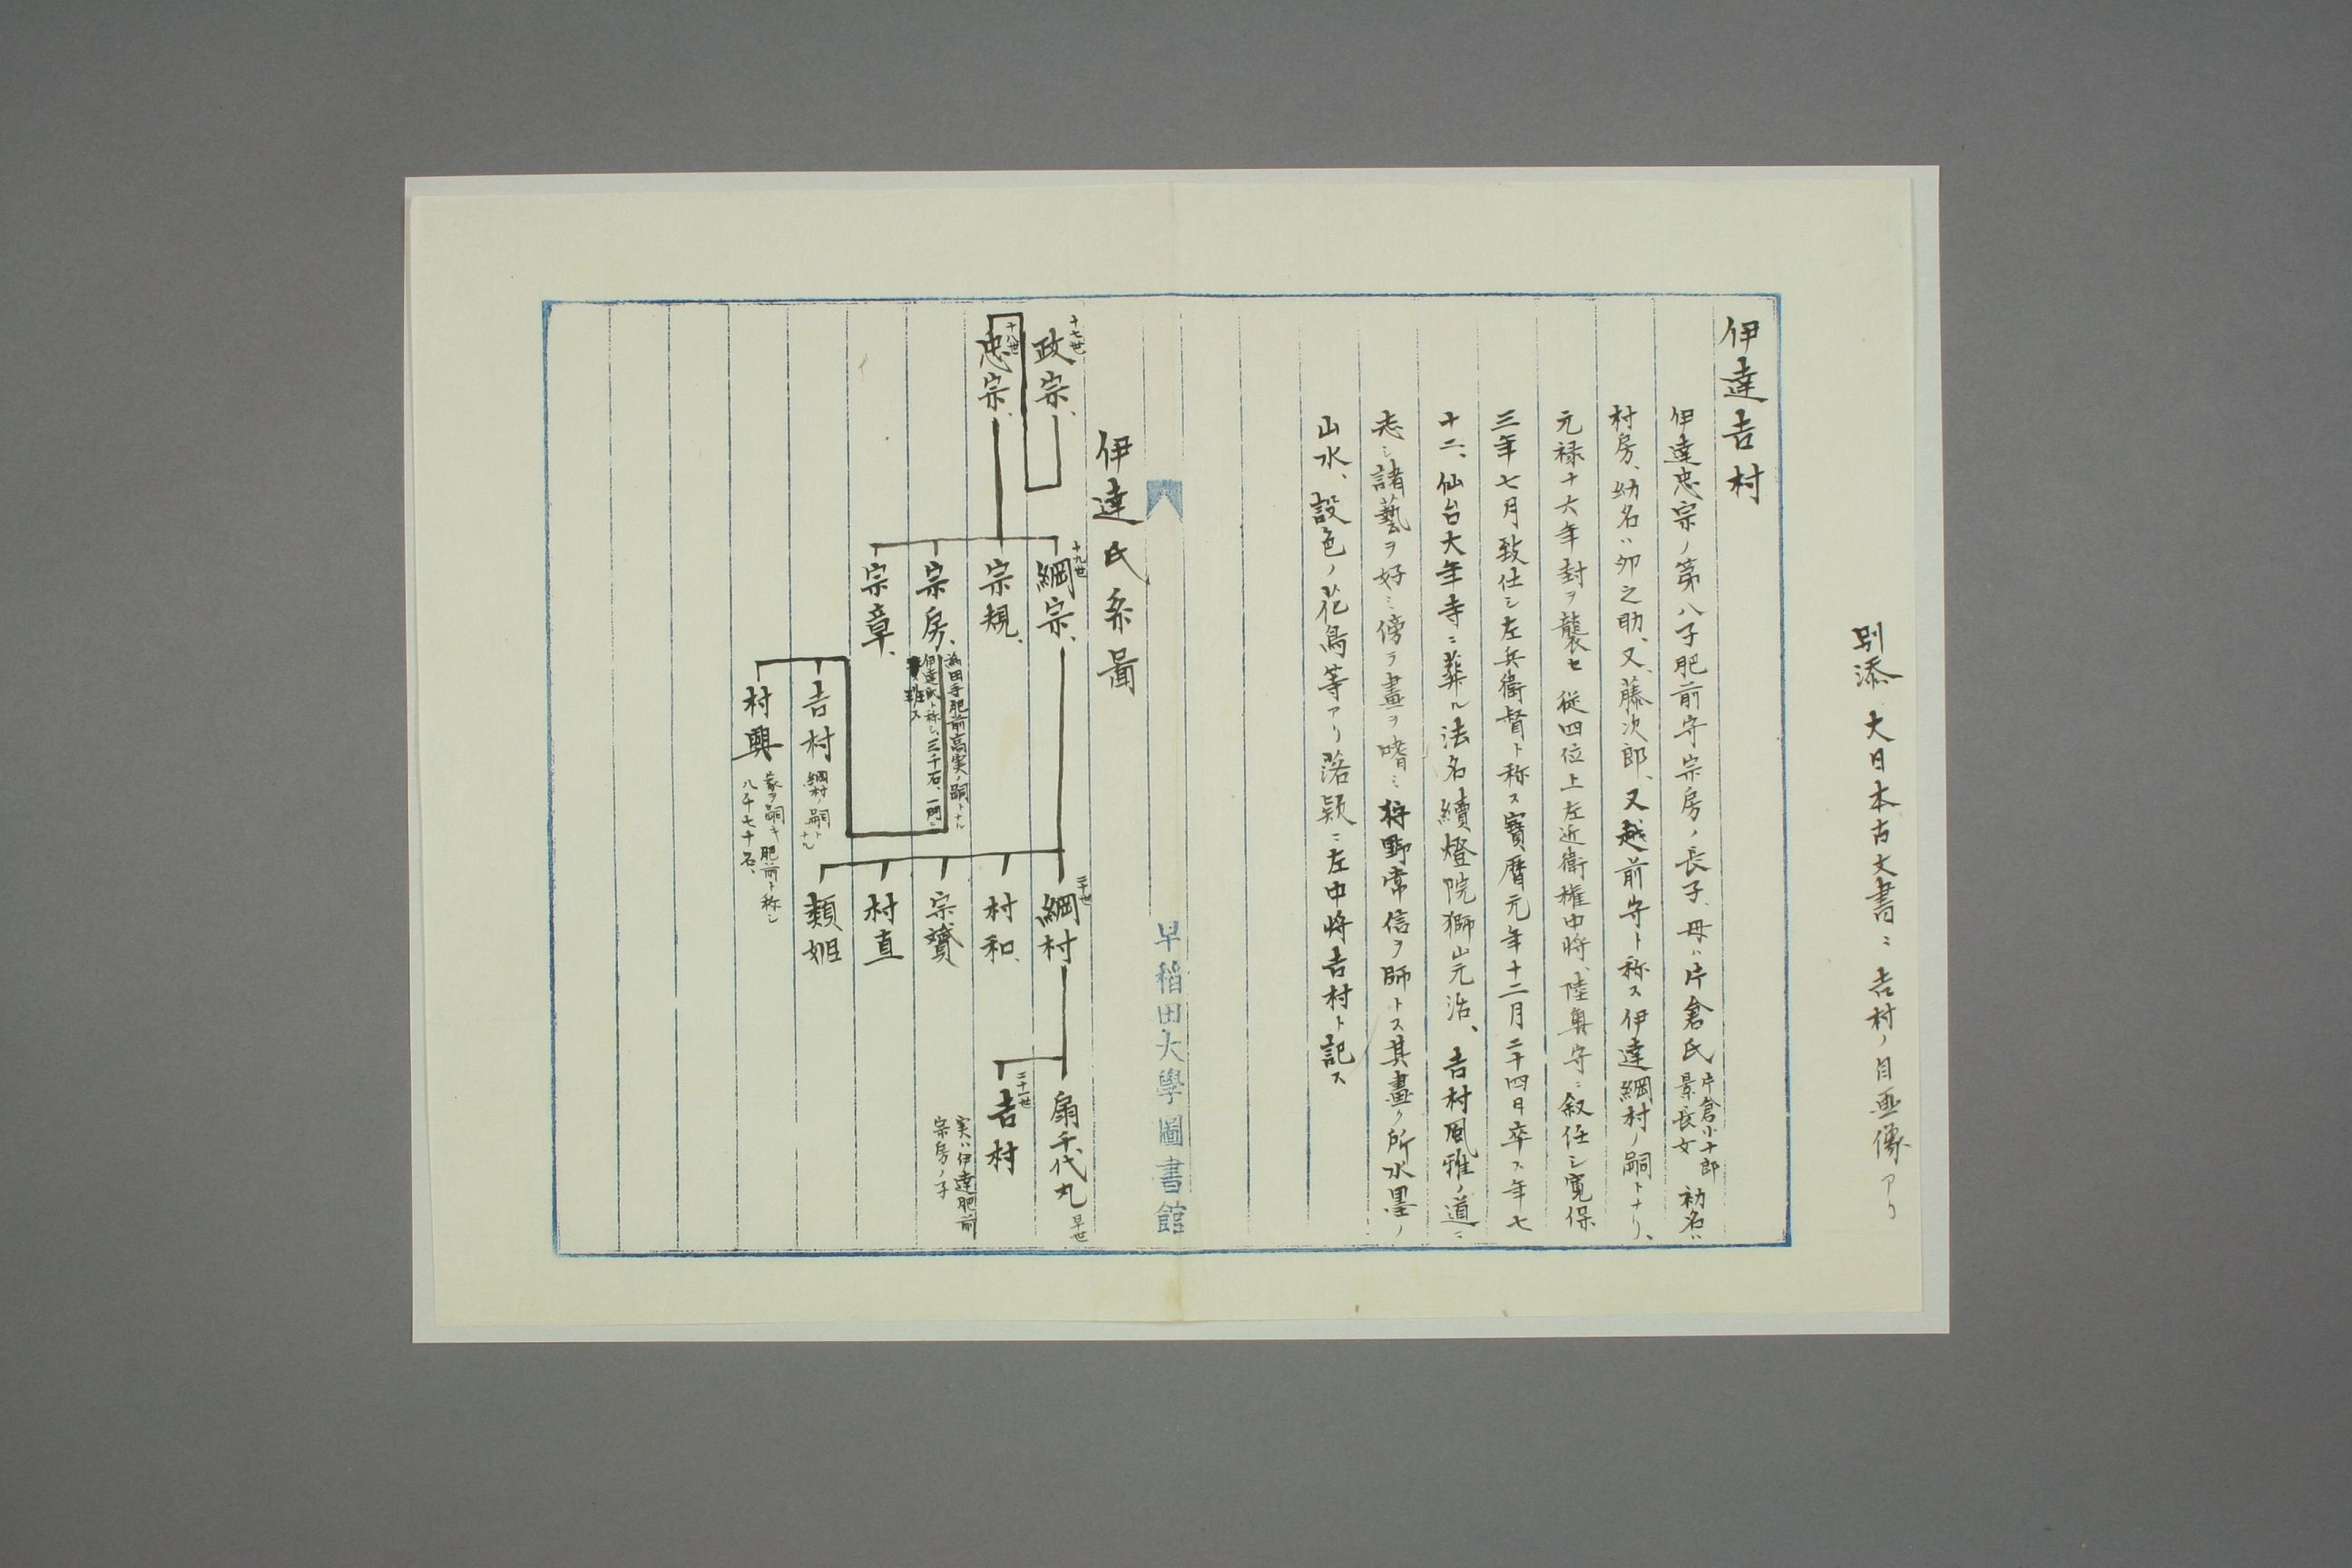 別添 大日本古文書ニ吉村ノ自画像アリ
伊達吉村
伊達忠宗ノ第八子肥前守宗房ノ長子、母ハ片倉氏片倉小十郎景長女 初名ハ
村房、幼名ハ卯之助、又、藤次郎、又越前守ト称ス伊達綱村ノ嗣トナリ、
元禄十六年封ヲ襲セ 従四位上左近衛権中将、陸奥守ニ叙任シ寛保
三年七月致仕シ左兵衛督ト称ス寶暦元年十二月二十四日卒ス年七
十二、仙台大年寺ニ葬ル法名續燈院獅山元活、吉村風雅ノ道ニ
志シ諸藝ヲ好ミ傍ラ畫ヲ嗜ミ狩野常信ヲ師トス其畫ク所水墨ノ
山水、設色ノ花鳥等アリ落款ニ左中将吉村ト記ス
早稲田大學圖書館
伊達氏系圖
十七世
政宗、
十八世
忠宗、
十九世
綱宗、
宗規、
宗房、
為田手肥前高実ノ嗣トナル
伊達氏ト称シ、三千石、一門ニ
班ス
宗章、
吉村 綱村ノ嗣トナル
村興
家ヲ嗣キ肥前ト称シ
八千七十石、
二十世
綱村
村和、
宗贇
村直
類姐
扇千代丸 早世
二十一世
吉村
実ハ伊達肥前
宗房ノ子